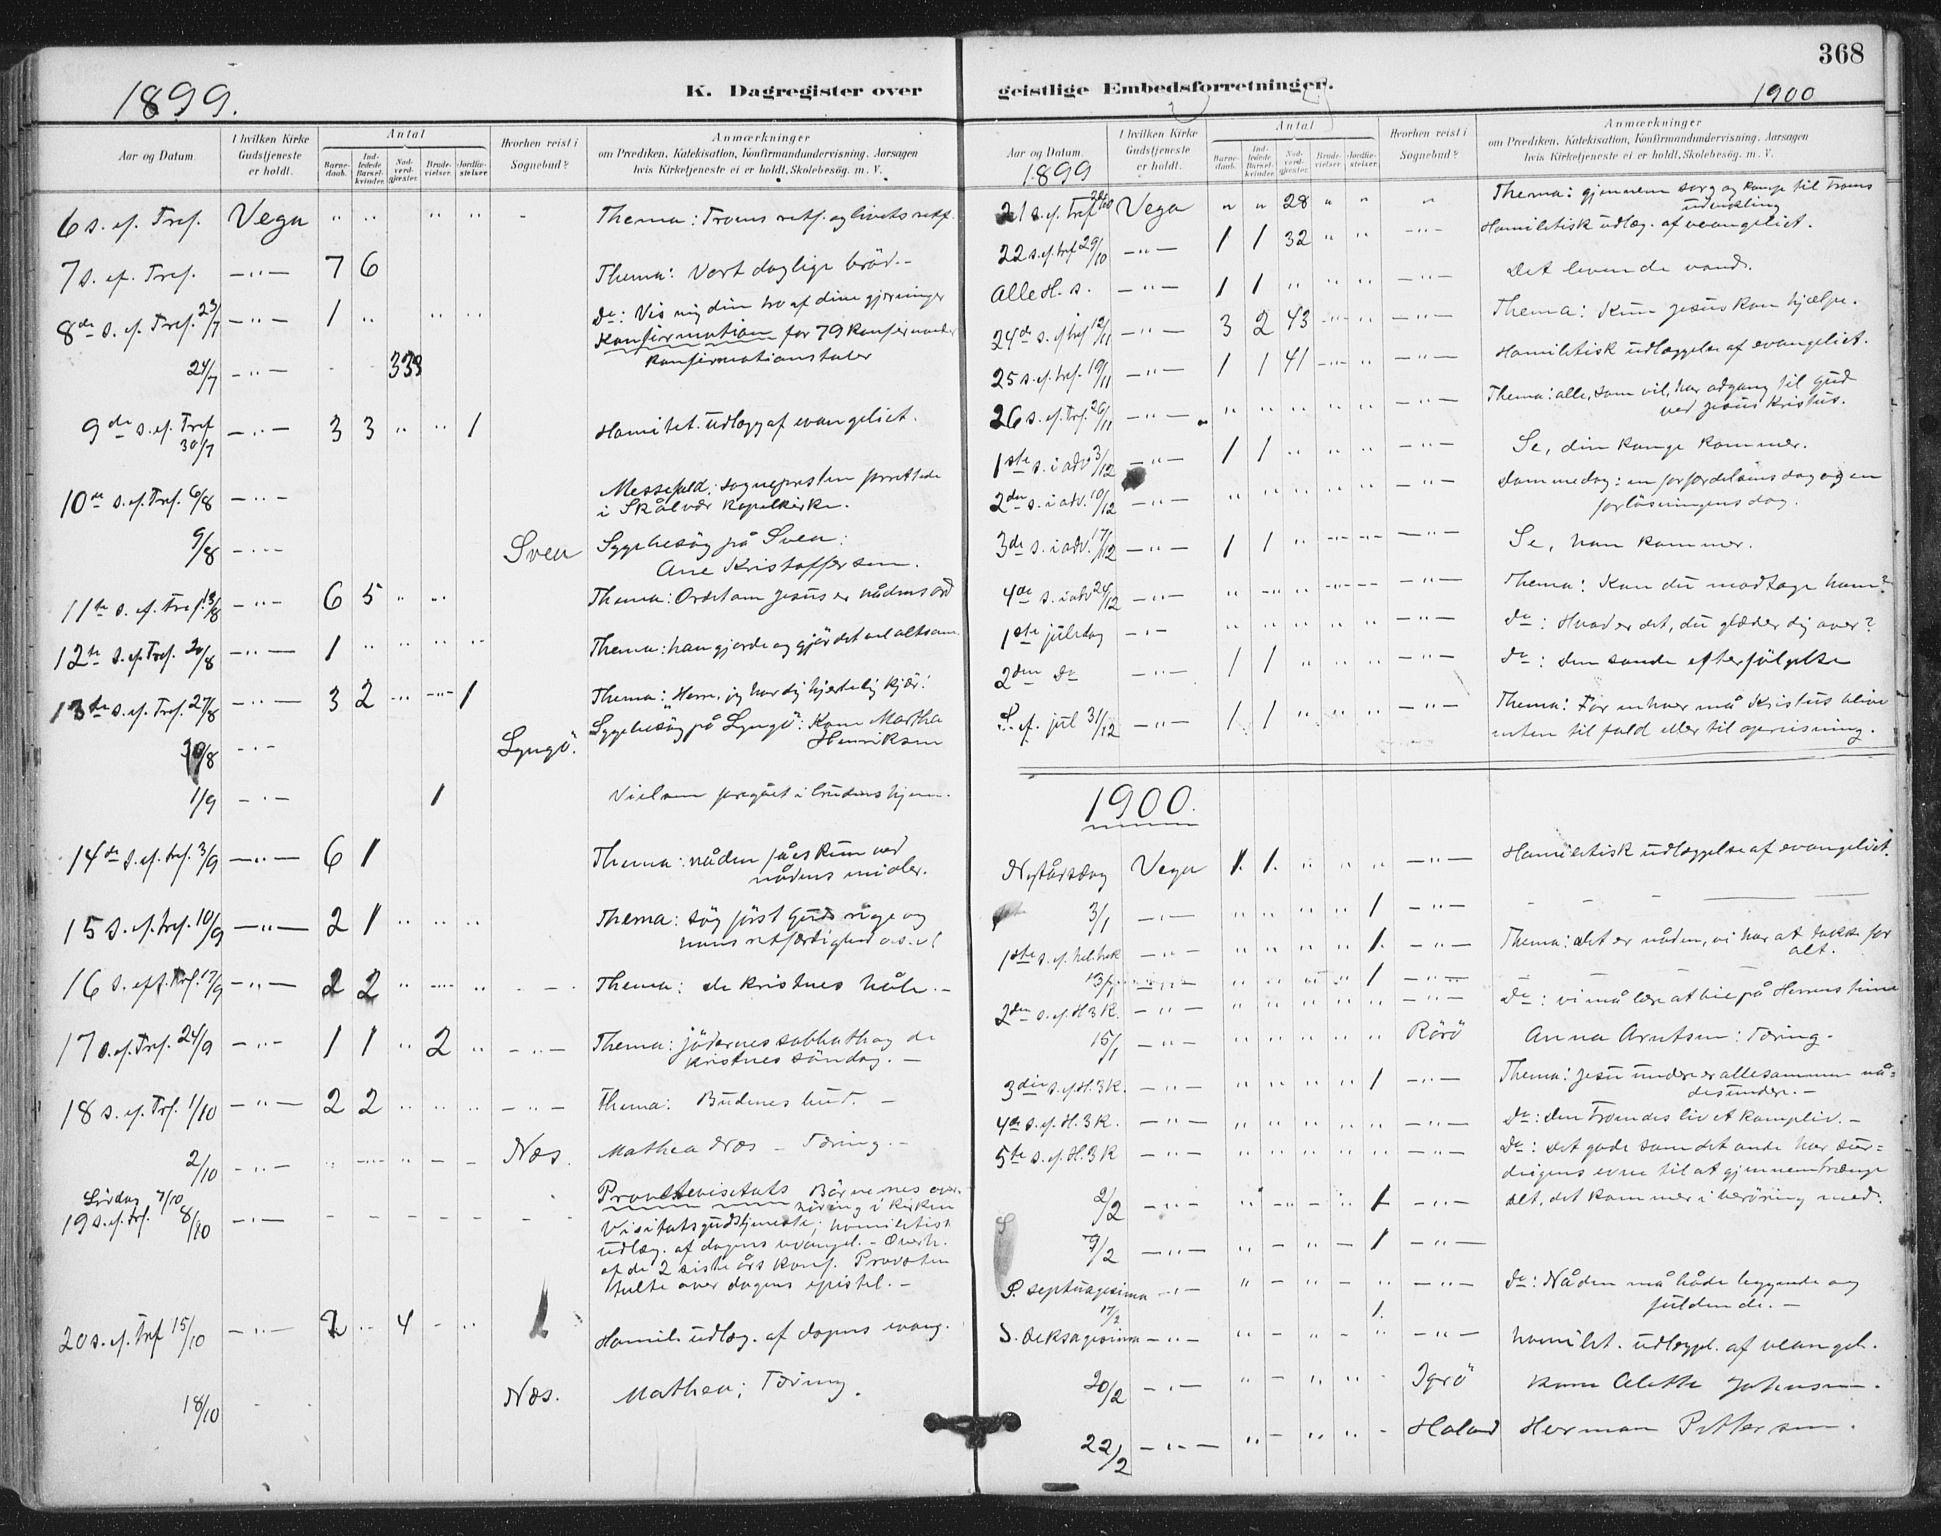 368
1899.
K. Dagregister over geistlige Embedsforretninger.
1900
Aar og Datum.
I hvilken Kirke Gudstjeneste er holdt.
Antal
Barnedaab.
Indledede Barselkvinder.
Nadverdgjester.
Brudevielser.
Jordfæstelser.
Hvorhen reist i Sognebud?
Anmærkninger
om Prædiken, Katekisation, Konfirmandundervisning, Aarsagen
hvis Kirketjeneste ei er holdt, Skolebesøg. m. V.
6 s. ef. Tref. Vega " " " " " - Thema: Troens retf. og livets retf.
7 s. ef. Tref. — " — 7 6 Thema: Vort daglige brød. -
8de s. ef. Tref. 23/7 — " — 1 " " " Do: Vis mig din tro af dine gjerninger
Konfirmation for 79 konfirmander
Konfirmationstaler
24/7 — " — - -
9de s. ef. Tref 30/7 — " — 3 3 " " 1 Homilet. udlægg af evangeliet.
10de s. ef. Tref. 6/8 — " — Messefald; sognepresten forrettede
i Skålvær kapelkirke.
9/8 — " — Svea Sygebesøg på Svea:
Ane Kristoffersen.
11te s. ef. Tref. 13/8 — " — 6 5 " " Thema: Ordet om Jesus er nådens ord
12te s. ef. Tref. 20/8 — " — 1 " " " " Thema: han gjorde og gjør det vel altsam.
13de s. ef. Tref. 27/8 — " — 3 2 " " 1 Thema: "Herre, jeg har dig hjertelig kjær!
30/8 — " — Lyngö. Sygebesøg på Lyngö: Kone Martha
Henriksen
1/9 — " — 1 Vielsen foregået i brudens hjem.
14de s. ef. tref. 3/9 — " — 6 1 Thema: nåden fåes kun ved
nådens midler.
15 s. ef. tref. 10/9 — " — 2 1 " " " Thema: søg først Guds rige og
hans retfærdighed o.s.v!
16 s. eft. Tref. 17/9 — " — 2 2 " " " - - - Thema: de kristnes håb. -
17 s. ef. Tref. 24/9 — " — 1 1 " 2 " - " - Thema: jødernes sabbath og de
kristnes søndag. -
18 s. ef. Tref. 1/10 — " — 2 2 " " " - " - Thema: Budenes bud. -
2/10 — " — Næs. Mathea Næs - Tæring. -
Lördag 7/10
19 s. ef. tref. 8/10 — " — - - - - - - Provstevisitats Börnenes over-
höring i kirken
Visitatsgudstjeneste; homiletisk
udlæg. af dagens evangel. - Overh.
af de 2 siste års konf. Provsten
talte over dagens epistel. -
20 s. ef. tref 15/10 — " — 2 " 4 - " Homil. udlæg. af dagens evang.
18/10 Næs. Mathea; Tæring.
Aar og Datum.
1899
I hvilken Kirke Gudstjeneste er holdt.
Antal
Barnedaab.
Indledede Barselkvinder.
Nadverdgjester.
Brudevielser.
Jordfæstelser.
Hvorhen reist i Sognebud?
Anmærkninger
om Prædiken, Katekisation, Konfirmandundervisning, Aarsagen
hvis Kirketjeneste ei er holdt, Skolebesøg. m. V.
21 s. ef. Tref Vega " " 28 " " " Thema: gjennem sorg og kamp til troens
udvikling
22 s. ef. tref 29/10 — " — 1 1 32 " " — " — Homiletisk udlæg. af evangeliet.
Alle H. s. — " — 1 1 " " " — " — Det levende vand.
24de s. ef. tref 12/11 — " — 3 2 43 " " — " — Thema: Kun Jesus kan hjælpe.
25 s. ef. tref. 19/11 — " — 1 1 41 " " — " — Homiletisk udlæggelse af evangeliet.
26 s. ef. Tref. 26/11 — " — " " " " " — " — Thema: alle, som vil, har adgang til Gud
ved Jesus Kristus.
1ste s. i adv 3/12 — " — 1 1 " " " — " — Se, din konge kommer.
2den s. i adv. 10/12 — " — " " " " " — " — Dommedag: en forfærdelsens dag og en
forløsningens dag.
3de s. i adv. 17/12 — " — 1 1 " " " — " — Se, han kommer.
4de s. i adv 24/12 — " — " " " " " — " — Thema: Kan du modtage ham?
1ste juledag — " — " " " " " — " — Do: Hvad er det, du glæder dig over?
2den Do — " — 1 1 " " " — " — Do: den sande efterfølgelse
S. ef. jul 31/12 — " — 1 1 " " " — " — Thema: For enhver må Kristus blive
enten til fald eller til opreisning.
1900.
Nytårsdag Vega 1. 1. " " " — " — Homiletisk udlæggelse af evangeliet.
3/1 — " — " " " " 1 — " — - - - -
1ste s. ef. hel. trek — " — " " " " 1. — " — Thema: det er nåden, vi har at takke for
alt.
13/1 — " — " " " " 1 — " —
2den s. ef. H 3 K. — " — " " " " " — " — Do: vi må lære at bie på Herrens time
15/1 — " — " " " " " Rörö Anna Arntsen: Tæring. -
3die s. ef. H. 3 K. — " — " " " " 1 — " — Thema: Jesu undere er allesammen nå-
desundere. -
4de s. ef. H. 3 K. — " — " " " " " — " — Do: den troendes liv et kampliv. -
5te s. ef. H. 3 K — " — " " " " " — " — Do: Det gode som det onde har sur-
deigens evne til at gjennemtrænge
alt, det kommer i berøring med.
2/2 — " — " " - - 1 — " —
7/2 — " — " - " - 1 — " —
S. septuagesima — " — " - " - " — " — Do: Nåden må både byggende og
fuldende. -
17/2 1.
S. seksagesima — " — " - " - " — " — homilet. udlæggel. af evangel.
20/2 — " — " - " " - Igerö kone Alette Johnsen.
22/2 — " — " - " " - Holand Herman Pettersen.